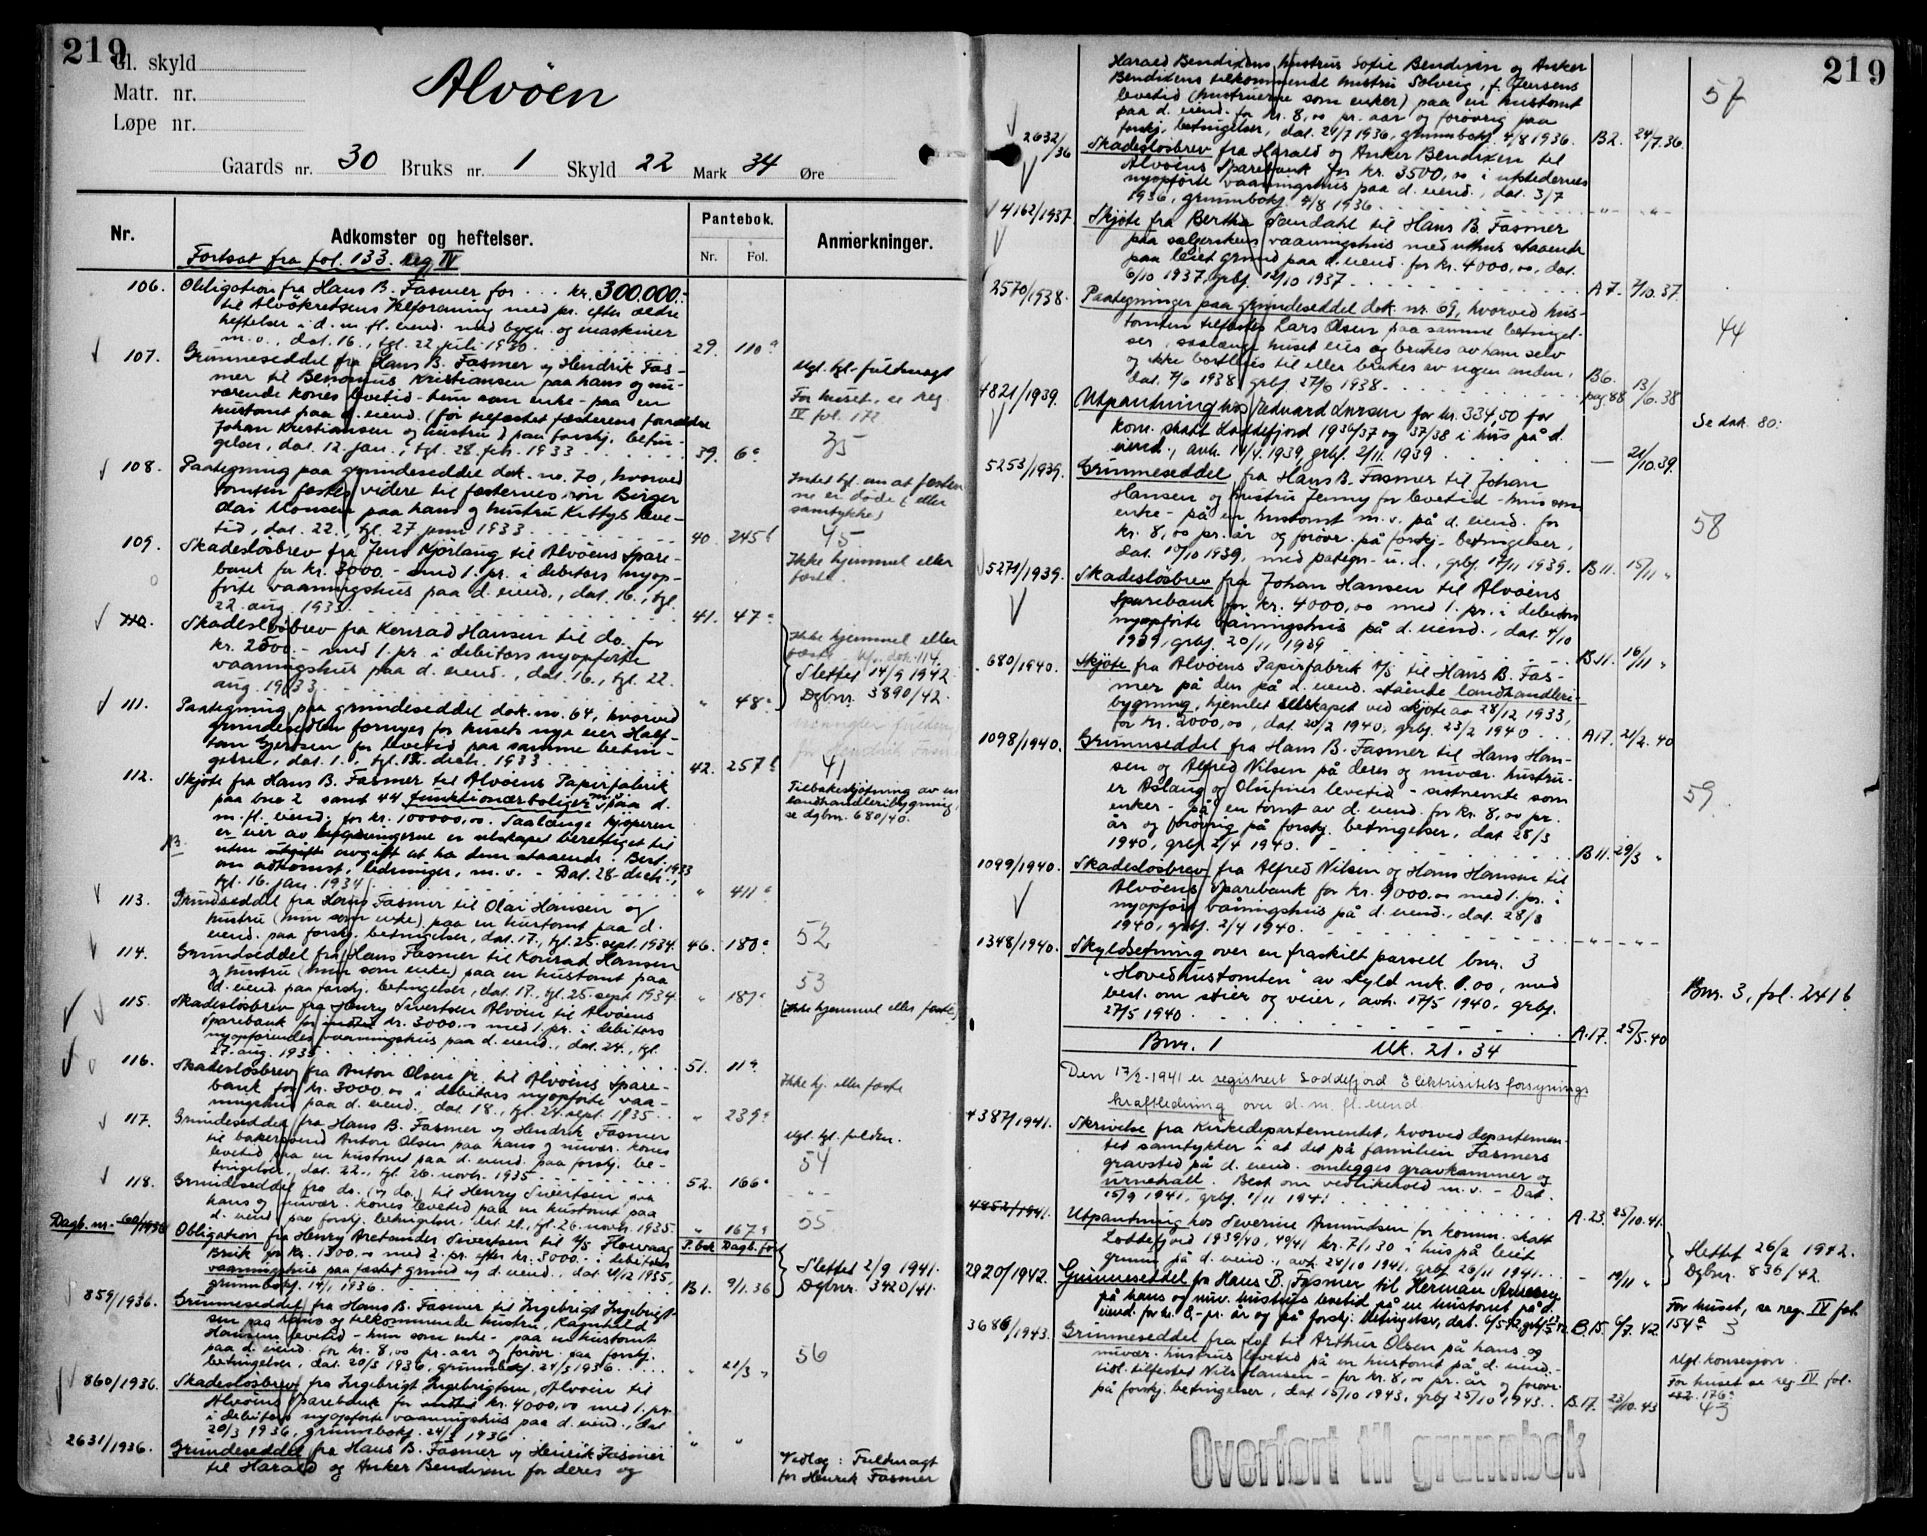 219
Gl. skyld
Matr. nr.
Løpe nr.
Alvøen
Gaards nr. 30 Bruks nr. 1 Skyld 22 Mark 34 Øre
Nr. Adkomster og heftelser. Pantebok. Nr. Fol. Anmerkninger.
Fortsat fra fol. 133. reg IV
106. Obligation fra Hans B. Fasmer for ... kr. 300.000.-
til Alvøkretsens Velforening med pr. efter ældre
heftelser i d. m. fl. eiend. med bygn. og maskiner
m. v., dat. 16., tgl. 22 juli 1930. 29. 110a
107. Grunneseddel fra Hans B. Fasmer og Hendrik Fas-
mer til Kristiansen paa hans og nu-
værende kones levetid - hun som enke - paa en
hustomt paa d. eiend. (før tilfæstet fæsterens forældre
Johan Kristiansen og hustru) paa forskj. betin-
gelser, dat. 12. jan., tgl. 28. feb. 1933 39. 6a
Mgl. tgl. fuldmagt
For huset, se reg.
IV fol. 172
35
108. Paategning paa grundeseddel dok. no. 70, hvorved
tomten fæstes videre til fæsternes søn Birger
Olai Monsen paa hans og hustru Kittys leve-
tid, dat. 22., tgl. 27 juni 1933 40. 245b
Intet tgl. om at fæster-
ne er døde (eller
samtykke)
45
109. Skadesløsbrev fra Jens Kjørlaug til Alvøens Spare-
bank for kr. 3000.- med 1. pr. i debitors nyop-
førte vaaningshus paa d. eiend., dat. 16., tgl.
22. aug. 1933. 41. 47a
Ikke hjemmel eller
fæste.
110. Skadesløsbrev fra Konrad Hansen til do. for
kr. 2500.- med 1. pr. i debitors nyopførte
vaaningshus paa d. eiend., dat. 16., tgl. 22.
aug. 1933. " 48a
Ikke hjemmel eller
fæste. dok. 114.
Slettet 14/9 1942
Dgbnr. 3890/42.
111. Paategning paa grundeseddel dok. no. 64, hvorved
grundesedlen fornyes for husets nye eier Half-
tan Gjertsen for levetid paa samme betin-
gelser, dat. 1., tgl. 12. decb. 1933 42. 257b
mangler fuldm.
for Hendrik Fasm
41
112. Skjøte fra Hans B. Fasmer til Alvøens Papirfabrik
paa bno 2 samt 44 funktionærboliger m. v. paa d.
m. fl. eiend. for kr. 100000,00. Saalænge kjøperen
er eier av bygningerne er selskapet berettiget til
NB. uten utgift avgift at ha dem staaende. Best.
om adkomst, ledninger, m. v. - Dat. 28 decb. 1933
tgl. 16. jan. 1934 " 411a
Tilbakeskjøtning av en
landhandleribygning,
se dgbnr. 680/40.
113. Grundseddel fra Hans Fasmer til Olai Hansen og
hustru (hun som enke) paa en hustomt paa d.
eiend. paa forskj. betingelser, dat. 17., tgl. 25. sept. 1934. 46. 180a
52
114. Grundseddel fra Hans Fasmer til Konrad Hansen
og hustru (hun som enke) paa en hustomt paa
d. eiend. paa forskj. betingelser, dat. 17., tgl. 25. sept. 1934. " 181a
53
115. Skadesløsbrev fra Henry Sivertsen Alvøen til Alvøens
Sparebank for kr. 3000.00 med 1. pr. i debitors
nyopførendes vaaningshus paa d. eiend., dat. 24., tgl.
27. aug. 1935 51. 11a
(Ikke hjemmel eller fæste)
116. Skadesløsbrev fra Anton Olsen jr. til Alvøens Spare-
bank for kr. 3000.00 i debitors nyopførte vaa-
ningshus paa d. eiend., dat. 18., tgl. 24. sept. 1935 " 239a
Ikke hj. eller fæste
117. Grundeseddel fra Hans B. Fasmer og Hendrik Fasmer
til bakersvend Anton Olsen paa hans og nuvær. kones
levetid paa en hustomt paa d. eiend. paa forskj. be-
tingelser, dat. 22., tgl. 26. novb. 1935 52. 166a
Mgl. tgl. fuldm.
54
118. Grundeseddel fra do. (og do.) til Henry Sivertsen paa
hans og nuvær. kones levetid paa en hustomt paa
d. eiend. paa forskj. betingelser, dat. 21., tgl. 26. novb. 1935. " 167a
55
Dagb. nr. 60/1936 Obligation fra Henry Aretander Sivertsen til A/S Howaag
Bruk for kr. 1300.00 med 2. pr. efter kr. 3000.- i debitors
vaaningshus paa fæstet grund og d. eiend., dat. 21/12 1935,
grunnboksf. 14/1 1936. P. bok Dagb. før B 1. 9/1.36
Slettet 2/9 1941.
Dgbnr. 3420/41.
859/1936. Grunneseddel fra Hans B. Fasmer til Ingebrigt Ingebrigt-
sen paa hans og tilkommende hustru, Ragnhild
Hansens levetid - hun som enke - paa en hustomt
paa d. eiend. for kr. 8,00 pr. aar og forøvr. paa forskj.
betingelser, dat. 20/3 1936, grunnboksf. 24/3 1936. " 21/3 "
56
860/1936. Skadesløsbrev fra Ingebrigt Ingebrigtsen, Alvøen til
Alvøens Sparebank for kr. 4000,00 med 1. pr.
i debitors nyopførte vaaningshus paa d. eiend., dat.
20/3 1936, grunnboksf. 24/3 1936 " "
2631/1936. Grundeseddel fra Hans B. Fasmer og Henrik Fasmer
til Harald og Anker Bendixen for deres og
Vedlag: Fuldmagt
for Henrik Fasmer
219
Harald Bendixens hustrus Sofie Bendixen og Anker
Bendixens tilkommende hustru Solveig, f. Jensens
levetid (hustruerne som enker) paa en hustomt
paa d. eiend. for kr. 8,00 pr. aar og forøvrig paa
forskj. betingelser, dat. 24/7 1936, grunnboksf. 4/8 1936. B2. 24/7.36.
57
2632/36 Skadesløsbrev fra Harald og Anker Bendixen til
Alvøens Sparebank for kr. 3500,00 i utstedernes
nyopførte vaaningshus paa d. eiend., dat. 3/7
1936, grunnboksf. 4/8 1936. " "
4162/1937. Skjøte fra Bertha Sændahl til Hans B. Fasmer
paa sælgerskens vaaningshus med uthus staaende
paa leiet grund paa d. eiend. for kr. 4000,00, dat.
6/10 1937, grbf. 12/10 1937. A 7. 7/10.37.
2570/1938. Paategninger paa grundeseddel dok. nr. 69, hvorved hus-
tomten tilfæstes Lars Olsen paa samme betingel-
ser, saalænge huset eies og brukes av ham selv
og ikke bortleies til eller brukes av nogen anden,
dat. 7/6 1938, grbf. 27/6 1938. B6. pag. 88 13/6.38
44
4821/1939. Utpantning hos Edvard Larsen for kr. 334,50 for
kom. skatt Laddefjord 1936/37 og 37/38 i hus på d.
eiend., avh. 14/4 1939, grbf. 2/11 1939. - 21/10.39.
Se dok. 80.
5253/1939. Grunneseddel fra Hans B. Fasmer til Johan
Hansen og hustru Jenny for levetid - hun som
enke - på en hustomt m. v. på d. eiend. for
kr. 8,00 pr. år og forøvr. på forskj. betingelser,
dat. 10/10 1939, med påtegn. u. d., grbf. 17/11 1939. B 11. 15/11 "
58
5271/1939. Skadesløsbrev fra Johan Hansen til Alvøens
Sparebank for kr. 4000,00 med 1. pr. i debitors
nyopførte våningshus på d. eiend., dat. 4/10
1939, grbf. 20/11 1939 B 11. 16/11 "
680/1940. Skjøte fra Alvøens Papirfabrik A/S til Hans B. Fas-
mer på den på d. eiend. stående landhandleri-
bygning, hjemlet selskapet ved skjøte av 28/12 1933,
for kr. 2000,00, dat. 20/2 1940, grbf. 23/2 1940 A17. 21/2. 40
1098/1940. Grunnseddel fra Hans B. Fasmer til Hans Han-
sen og Alfred Nilsen på deres og nuvær. hustru-
er Aslaug og Olufines levetid - sistnevnte som
enker - på en tomt av d. eiend. for kr. 8,00 pr.
år og forøvrig på forskj. betingelser, dat 28/3
1940, grbf 2/4 1940. B 11. 29/3 "
59.
1099/1940. Skadesløsbrev fra Alfred Nilsen og Hans Hansen til
Alvøens Sparebank for kr. 9000.00 med 1. pr. i
nyopført våningshus på d. eiend., dat. 28/3
1940, grbf. 2/4 1940. - " - - " -
1348/1940. Skyldsetning over en fraskilt parsell bnr. 3
"Hovedhustomten" av skyld mk. 1.00, med
best. om stier og veier, avh. 17/5 1940, grbf.
27/5 1940. A.17. 25/5.40
Bnr. 3, fol. 2416
Bnr. 1 Mk. 21.34
Den 17/2-1941 er registrert Laddefjord Elektrisitetsforsynings
kraftledning over d. m. fl. eiend.
4387/1941. Skrivelse fra Kirkedepartementet, hvorved departemen-
tet samtykker i at det på familien Fasmers
gravsted på d. eiend. anlegges gravkammer og
urnehall. Best. om vedlikehold m. v. - Dat.
15/9 1941, grbf. 1/11 1941. A. 23. 25/10.41.
4852/1941. Utpantning hos Severine Amundsen for komm. skatt
Laddefjord 1939/40, 40/41 kr. 71,30 i hus på leiet
grunn på d. eiend., avh. 24/10 1941, grbf. 26/11 1941. - 19/11 "
Slettet 26/2 1942.
Dgbnr. 836/42.
2920/1942. Grunneseddel fra Hans B. Fasmer til Herman Arnesen
på hans og nuv. hustrus levetid på en hustomt på d.
eiend. for kr. 8,- pr. år og på forskj. betingelser, dat. 6/5 42, B.15. 6/7. 42.
For huset, se reg. IV fol.
154a 3
3686/1943. Grunneseddel fra do. til Arthur Olsen på hans og
nuvær. hustrus levetid på en hustomt på d. eiend. -
tidl. tilfestet Nils Hansen - for kr. 8,00 pr. år og forøvr.
på forskj. betingelser, dat 15/10 1943, grbf 25/10 1943. B.17. 23/10.43
Mgl. konsesjon.
For huset se reg. IV fol.
176a
43
Overført til grunnbok